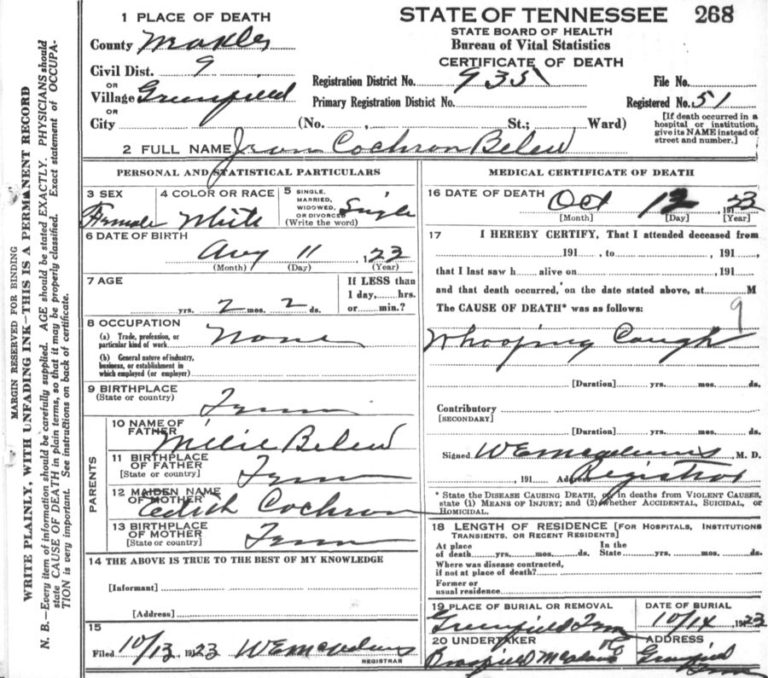 STATE OF TENNESSEE 268
STATE BOARD OF HEALTH
Bureau of Vital Statistics
CERTIFICATE OF DEATH
1 PLACE OF DEATH
County
Civil Dist. 9
OR
Village Greenfield
OR
City (No. , St.; Ward)
Registration District No. 935 File No.
Primary Registration District No. Registered No. 51
[If death occurred in a hospital or institution, give its NAME instead of street and number.]
2 FULL NAME Cochron Belew
PERSONAL AND STATISTICAL PARTICULARS
3 SEX Female
4 COLOR OR RACE White
5 SINGLE, MARRIED, WIDOWED, OR DIVORCED (Write the word) Single
6 DATE OF BIRTH Aug 11, 1923
(Month) (Day) (Year)
7 AGE yrs. 2 mos. 2 ds.
If LESS than 1 day, hrs. or min.?
8 OCCUPATION None
(a) Trade, profession, or particular kind of work
(b) General nature of industry, business, or establishment in which employed (or employer)
9 BIRTHPLACE
(State or country) Tenn
PARENTS
10 NAME OF FATHER Belew
11 BIRTHPLACE OF FATHER
[State or country] Tenn
12 MAIDEN NAME OF MOTHER Edith Cochron
13 BIRTHPLACE OF MOTHER
(State or country) Tenn
14 THE ABOVE IS TRUE TO THE BEST OF MY KNOWLEDGE
[Informant]
[Address]
15
Filed 10/13 1923
REGISTRAR
MEDICAL CERTIFICATE OF DEATH
16 DATE OF DEATH Oct 12, 1923
[Month] [Day] [Year]
17 I HEREBY CERTIFY, That I attended deceased from
191 , to 191 ,
that I last saw h alive on , 191 ,
and that death occurred, on the date stated above, at M
The CAUSE OF DEATH* was as follows:
9
Whooping Cough
[Duration] yrs. mos. ds.
Contributory
[SECONDARY]
[Duration] yrs. mos. ds.
Signed M. D.
, 191 Address Registrar
* State the DISEASE CAUSING DEATH, or in deaths from VIOLENT CAUSES, state (1) MEANS OF INJURY; and (2) whether ACCIDENTAL, SUICIDAL, OR HOMICIDAL.
18 LENGTH OF RESIDENCE [FOR HOSPITALS, INSTITUTIONS TRANSIENTS, OR RECENT RESIDENTS]
At place of death yrs. mos. ds. In the State yrs. mos. ds.
Where was disease contracted, if not at place of death?
Former or usual residence
19 PLACE OF BURIAL OR REMOVAL DATE OF BURIAL
Greenfield Tenn 10/14 1923
20 UNDERTAKER ADDRESS
Greenfield
Tenn
MARGIN RESERVED FOR BINDING
WRITE PLAINLY, WITH UNFADING INK—THIS IS A PERMANENT RECORD
N. B.—Every item of information should be carefully supplied. AGE should be stated EXACTLY. PHYSICIANS should
state CAUSE OF DEATH in plain terms, so that it may be properly classified. Exact statement of OCCUPA-
TION is very important. See instructions on back of certificate.